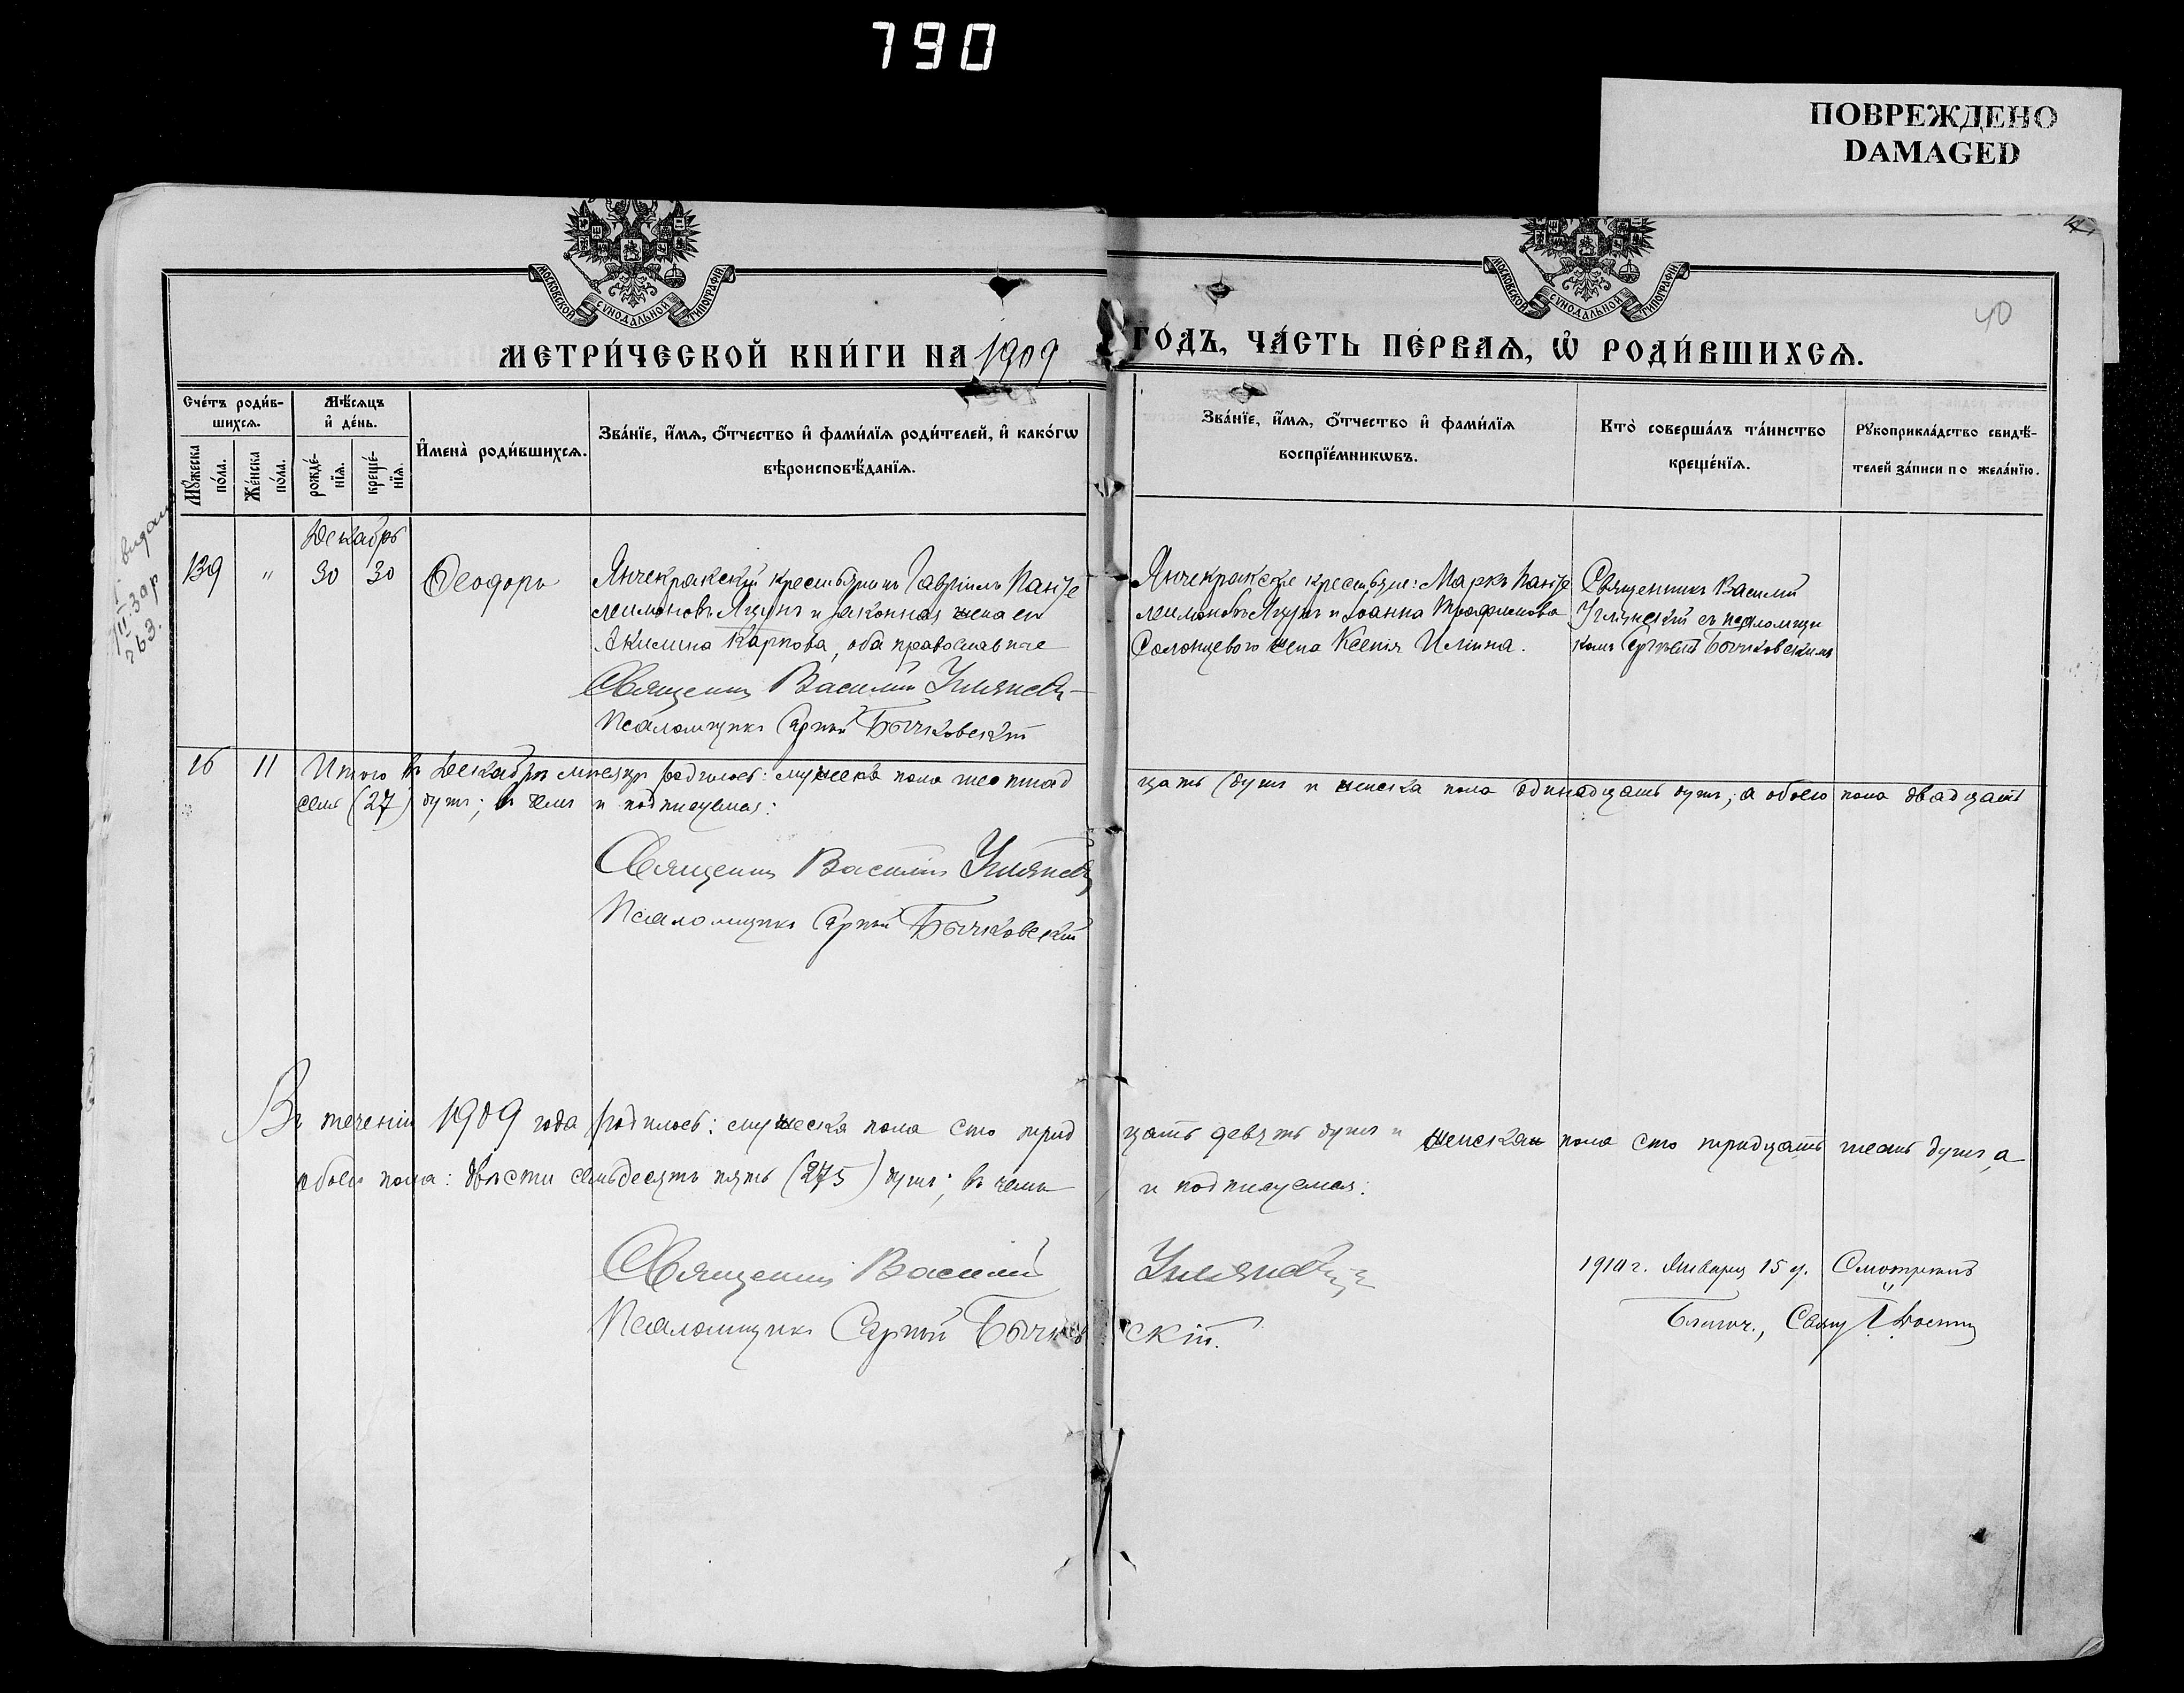 790
ПОВРЕЖДЕНО
DAMAGED
МОСКОВСКОЙ СУНОДАЛЬНОЙ ТИПОГРАФІИ
МОСКОВСКОЙ СУНОДАЛЬНОЙ ТИПОГРАФІИ
40
МЕТРИ́ЧЕСКОЙ КНИ́ГИ НА 1909 ГО́ДЪ, ЧА́СТЬ ПЕ́РВАѦ, Ѡ҆ РОДИ́ВШИХСѦ.
Сче́тъ роди́в-
шихсѧ.
Мꙋ́жеска
по́ла.
Же́нска
по́ла.
Мѣ́сѧцъ
и҆ де́нь.
рожде́-
нїѧ.
креще́-
нїѧ.
И҆мена̀ роди́вшихсѧ.
Зва́нїе, и҆́мѧ, ѻ҆́тчество и҆ фами́лїѧ роди́телей, и҆ како́гѡ
вѣроисповѣ́данїѧ.
Зва́нїе, и҆́мѧ, ѻ҆́тчество и҆ фами́лїѧ
воспрїе́мникѡвъ.
Кто̀ соверша́лъ та́инство
креще́нїѧ.
Рꙋкоприкла́дство свидѣ́-
телей за́писи по жела́нїю.
Декабрь
139 " 30 30 Ѳеодоръ
Янчекракскій крестьянинъ Гавріилъ Панте
леимоновъ Яцунъ и законная жена его
Акилина Карпова, оба православные
Священникъ Василій
Псаломщикъ Сергій Бычковскій
Янчекракскіе крестьяне: Маркъ Панте
леимоновъ Яцунъ и Іоанна Трофимова
Солонцевого жена Ксенія Иліина.
Священникъ Василій
съ псаломщи
комъ Сергіемъ Бычковскимъ
16 11 Итого въ Декабрѣ мѣсяцѣ родилось: мужеска пола шестнад
цать душъ и женска пола одинадцать душъ; а обоего пола двадцать
семь (27) душъ; въ чемъ и подписуемся:
Священникъ Василій
Псаломщикъ Сергій Бычковскій
Въ теченіи 1909 года родилось: мужеска пола сто трид
цать девять душъ и женска пола сто тридцать шесть душъ, а
обоего пола: двѣсти семьдесятъ пять (275) душъ; въ чемъ
и подписуемся:
Священникъ Василій
Псаломщикъ Сергій Бычковскій.
1910 г. Января 15 д. Смотрѣлъ
Благоч., Свящ